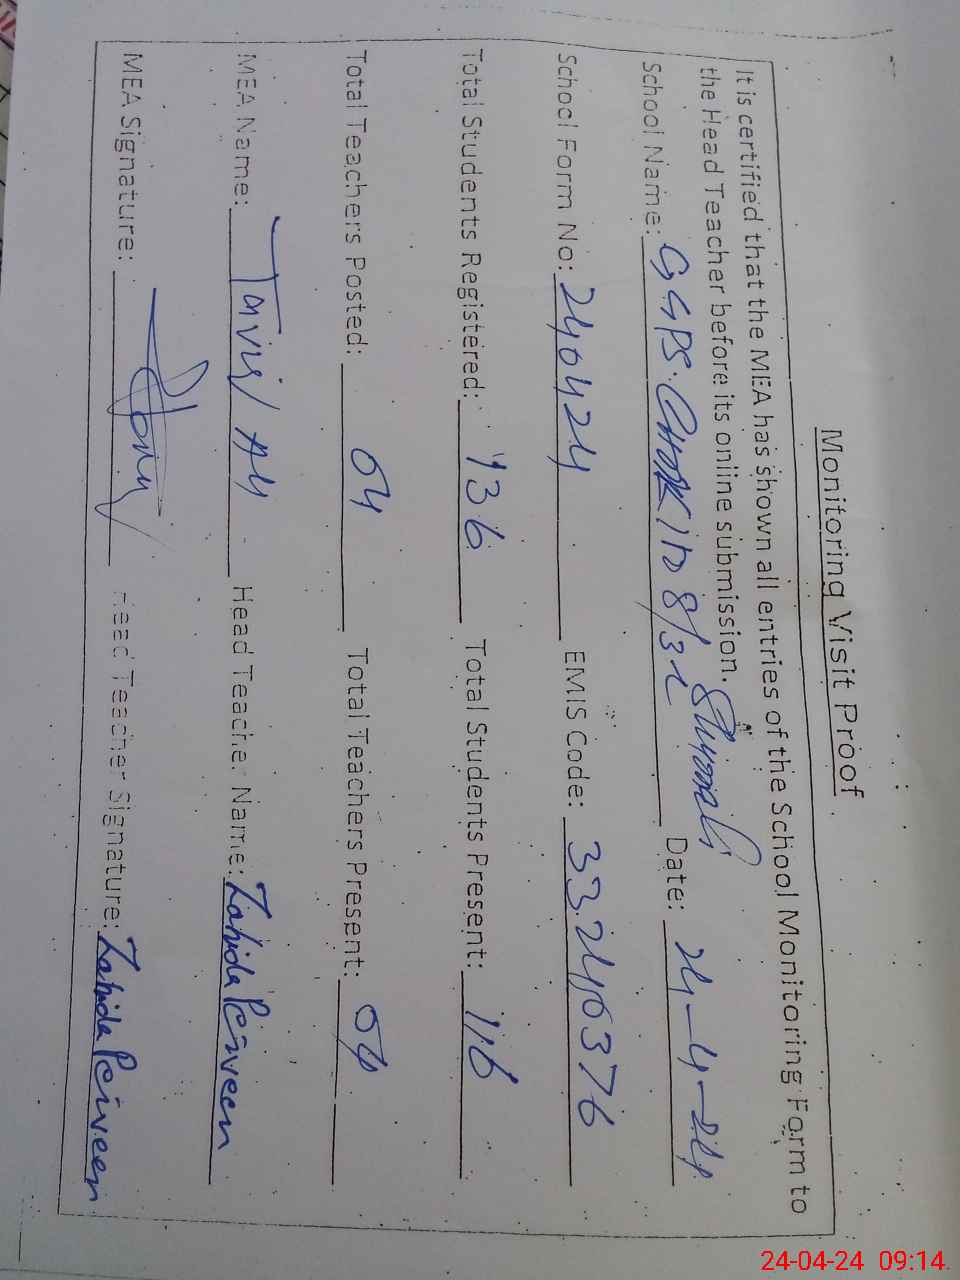 Monitoring Visit Proof
It is certified that the MEA has shown all entries of the School Monitoring Form to
the Head Teacher before its online submission.
School Name: GGPS. 8/3L Date: 24-4-24
School Form No: 240424 EMIS Code: 33240376
Total Students Registered: 136 Total Students Present: 116
Total Teachers Posted: 04 Total Teachers Present: 04
MEA Name: Head Teacher Name: Zahida Perveen
MEA Signature: Head Teacher Signature: Zahida Perveen
24-04-24 09:14